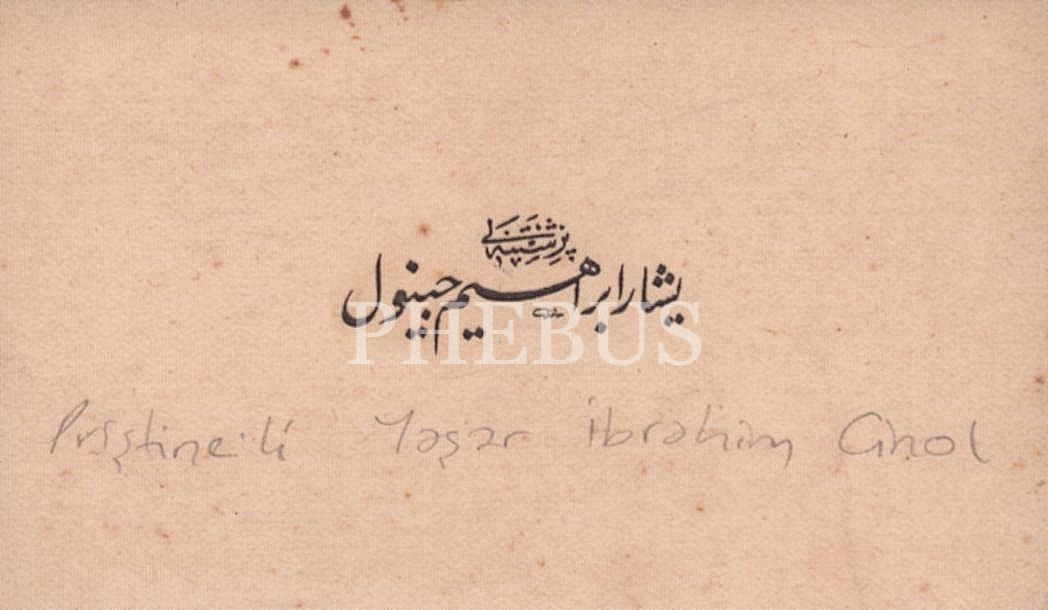 پرشتنه لی
يشار ابراهيم جينول
PHEBUS
Priştine'li Yaşar İbrahim Cinol